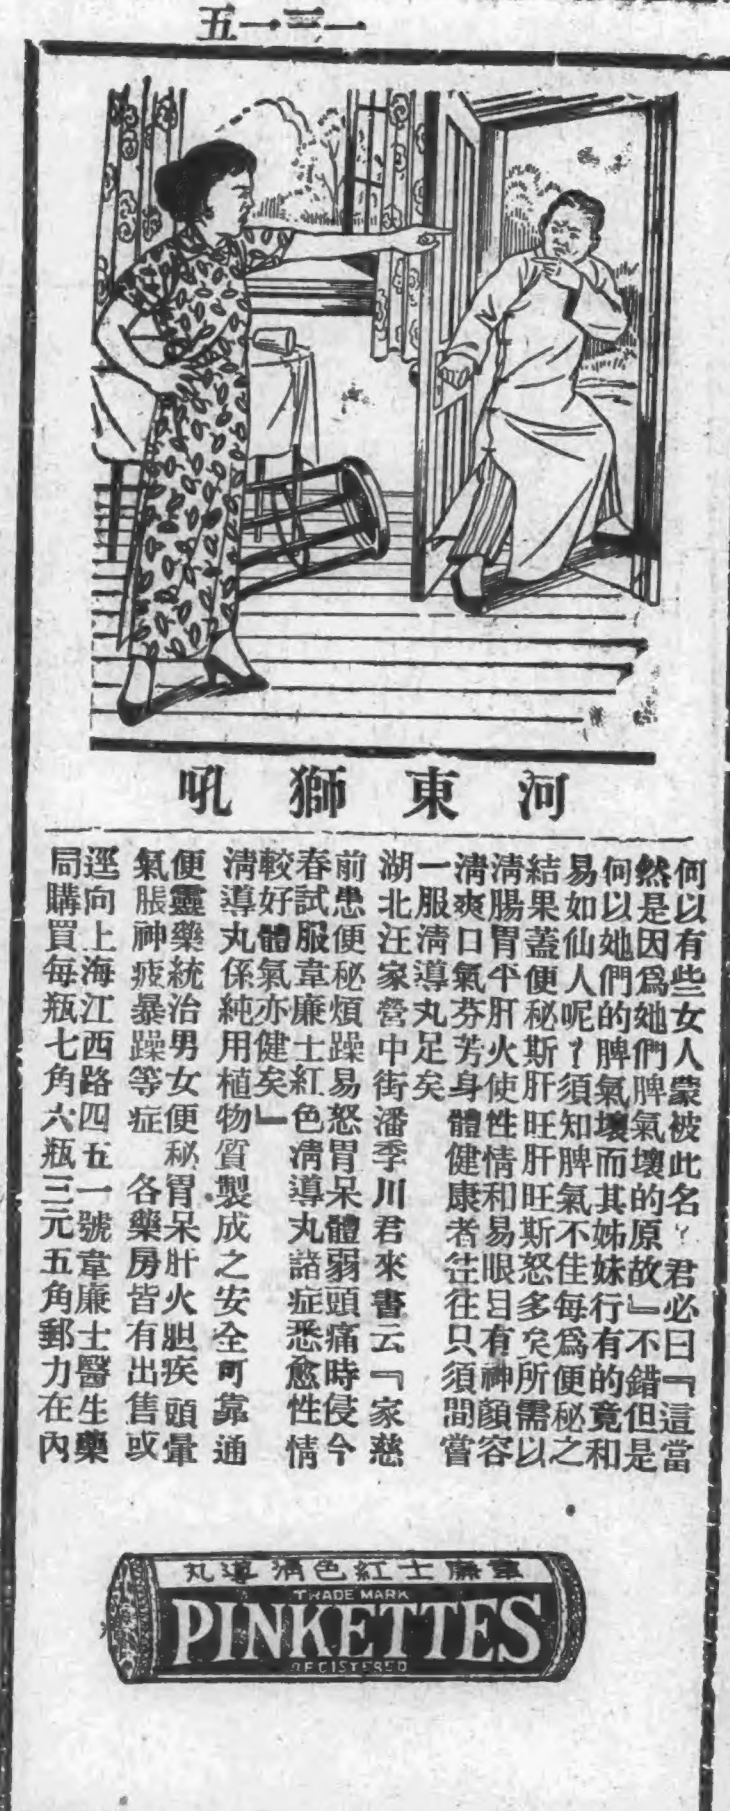 一三一五
河東獅吼
何以有些女人蒙被此名?君必曰『這當
然是因爲她們脾氣壞的原故』不錯但是
何以她們的脾氣壞而其姊妹行有的竟和
易如仙人呢?須知脾氣不佳每爲便秘之
結果蓋便秘斯肝旺肝旺斯怒多矣所需以
清腸胃平肝火使性情和易眼目有神顏容
清爽口氣芬芳身體健康者往往只須間嘗
一服清導丸足矣
湖北汪家營中街潘季川君來書云『家慈
前患便秘煩躁易怒胃呆體弱頭痛時侵今
春試服韋廉士紅色清導丸諸症悉愈性情
較好體氣亦健矣』
清導丸係純用植物質製成之安全可靠通
便靈藥統治男女便秘胃呆肝火胆疾頭暈
氣脹神疲暴躁等症 各藥房皆有出售或
逕向上海江西路四五一號韋廉士醫生藥
局購買每瓶七角六瓶三元五角郵力在內
韋廉士紅色清導丸
TRADE MARK
PINKETTES
REGISTERED